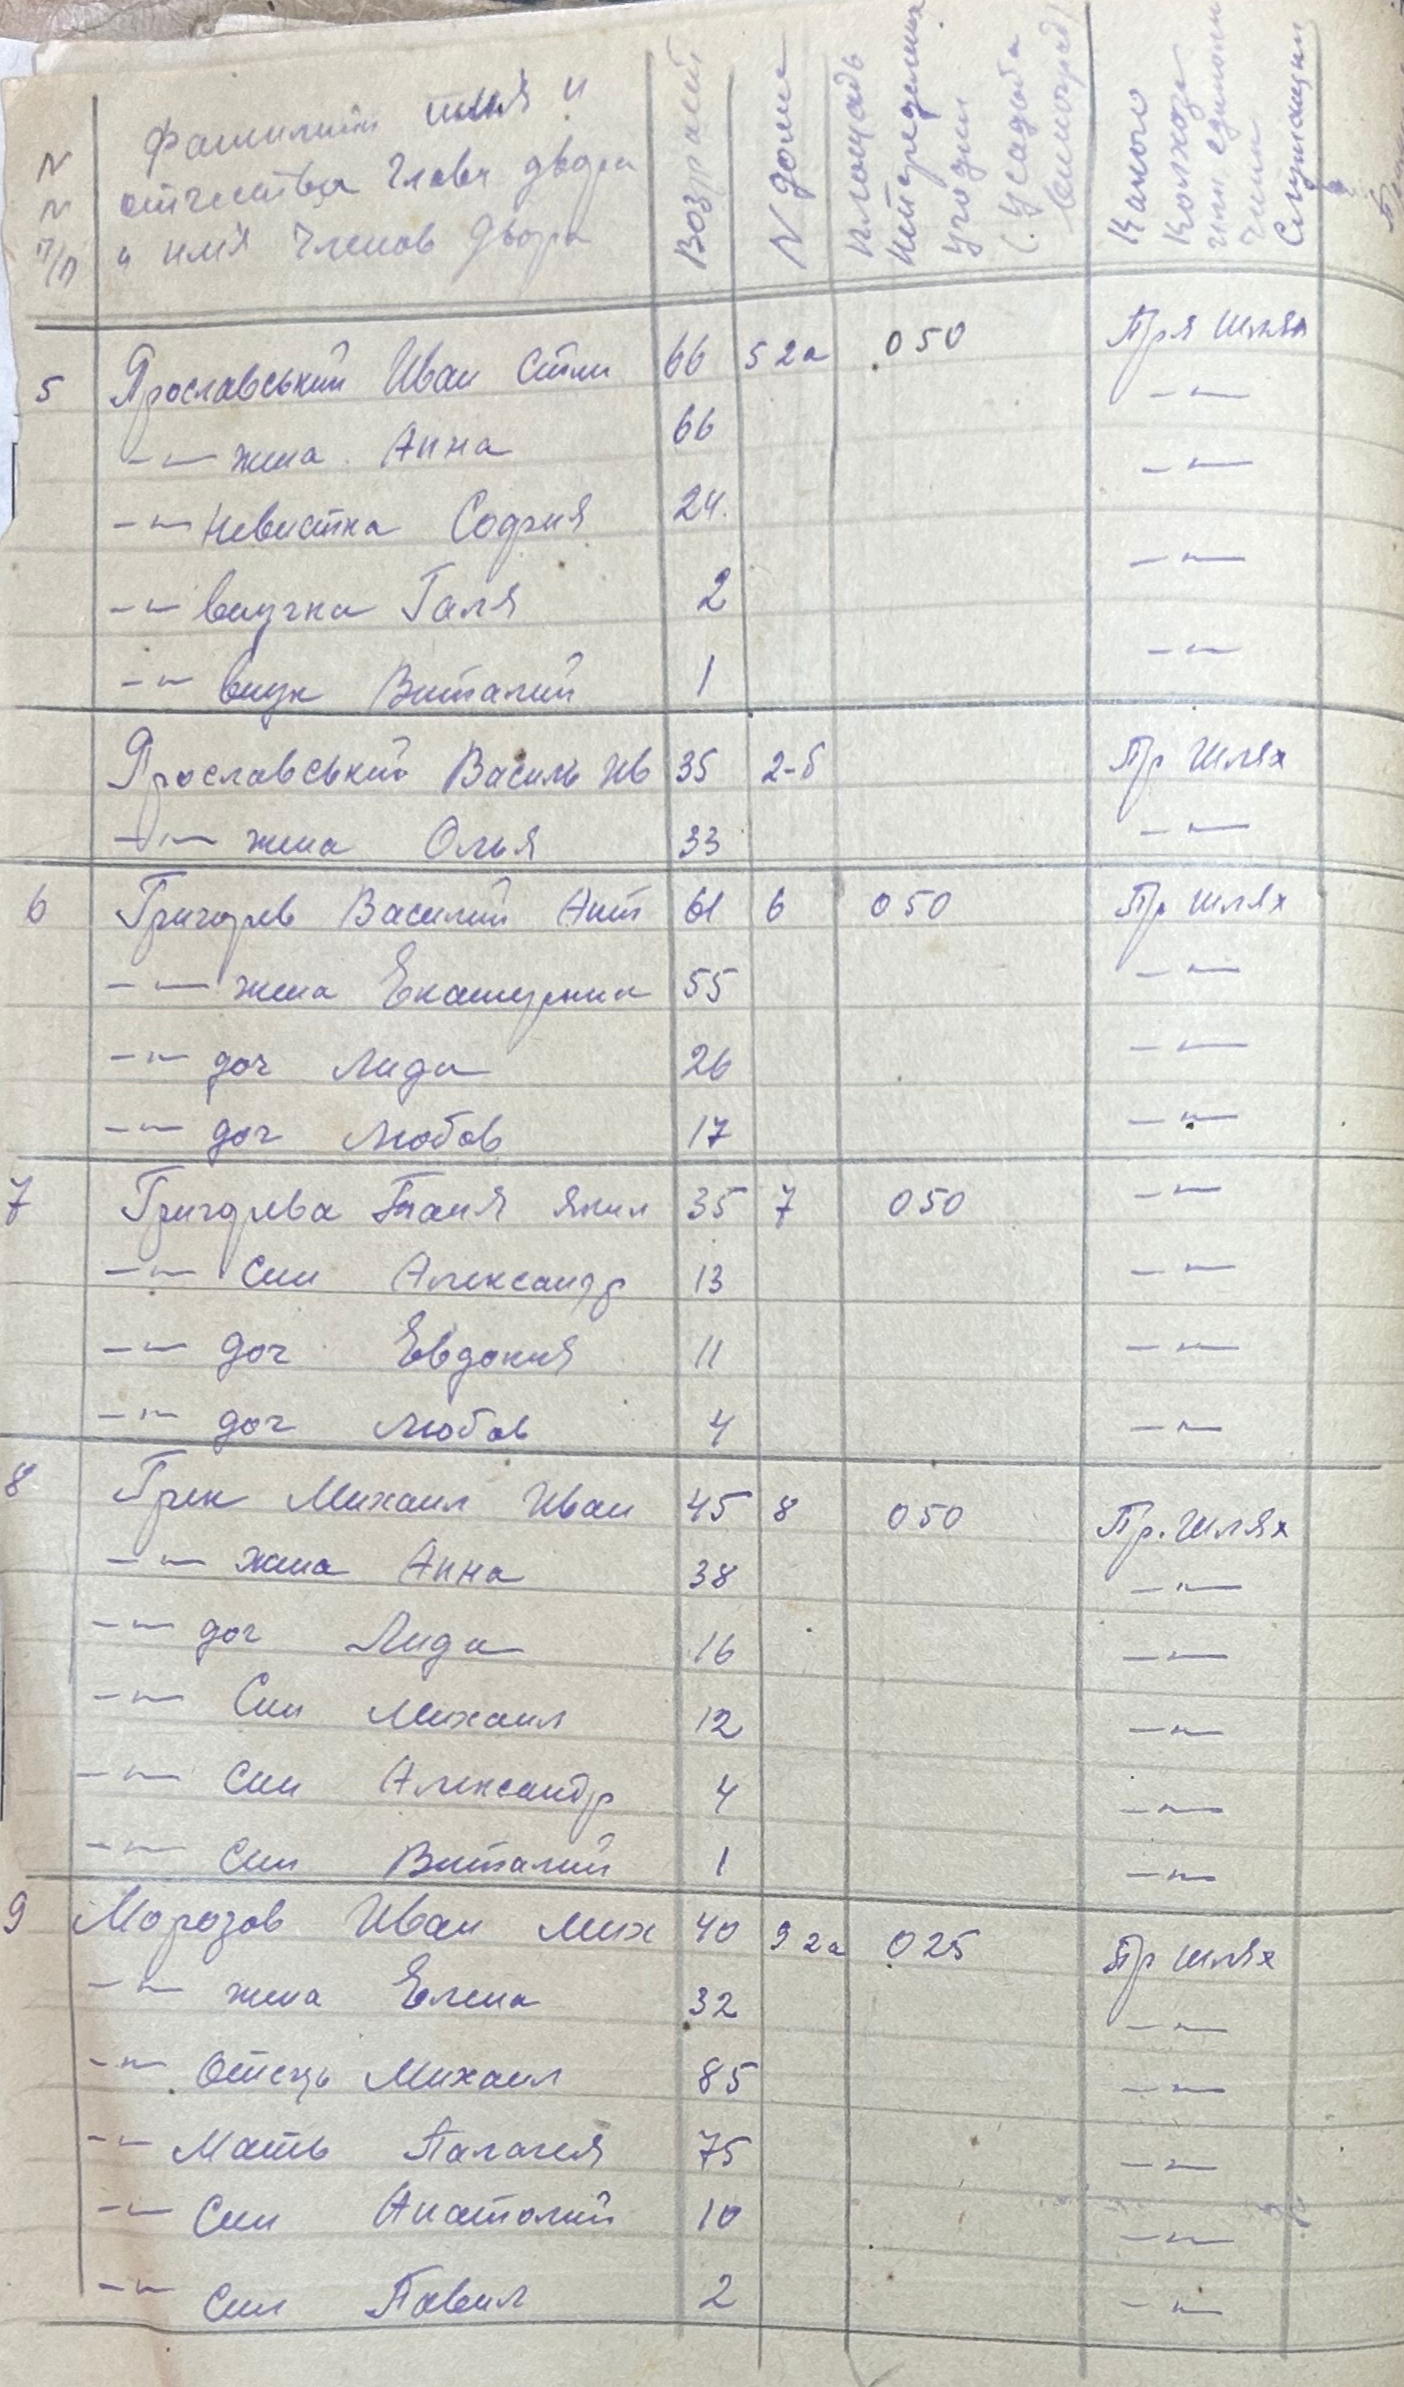 N N п/п
Фамилии имя и
отчества главы двора
и имя членов двора
Возраст
N дома
площадь
угодий
(усадьба
Какого
колхоза
или единолич
Служащий
5 Ярославський Иван 66 5 2а 050 Пря шлях
-"- жена Анна 66 -"-
-"- невистка София 24. -"-
-"- внучка Галя 2 -"-
-"- внук Виталий 1 -"-
Ярославський Василь Ив 35 2-б Пр шлях
-"- жена Олья 33 -"-
6 Григорев Василий Ант 61 6 050 Пр шлях
-"- жена Екатерина 55 -"-
-"- доч Лида 26 -"-
-"- доч Любов 17 -"-
7 Григорева Таня Яким 35 7 050 -"-
-"- Син Александр 13 -"-
-"- доч Евдокия 11 -"-
-"- доч Любов 4 -"-
8 Грек Михаил Иван 45 8 050 Пр. шлях
-"- жена Анна 38 -"-
-"- доч Лида 16 -"-
-"- Син Михаил 12 -"-
-"- Син Александр 4 -"-
-"- Син Виталий 1 -"-
9 Морозов Иван Мих 40 9 2а 025 Пр шлях
-"- жена Елена 32 -"-
-"- Отець Михаил 85 -"-
-"- Мать Палагея 75 -"-
-"- Син Анатолий 10 -"-
-"- Син Павил 2 -"-